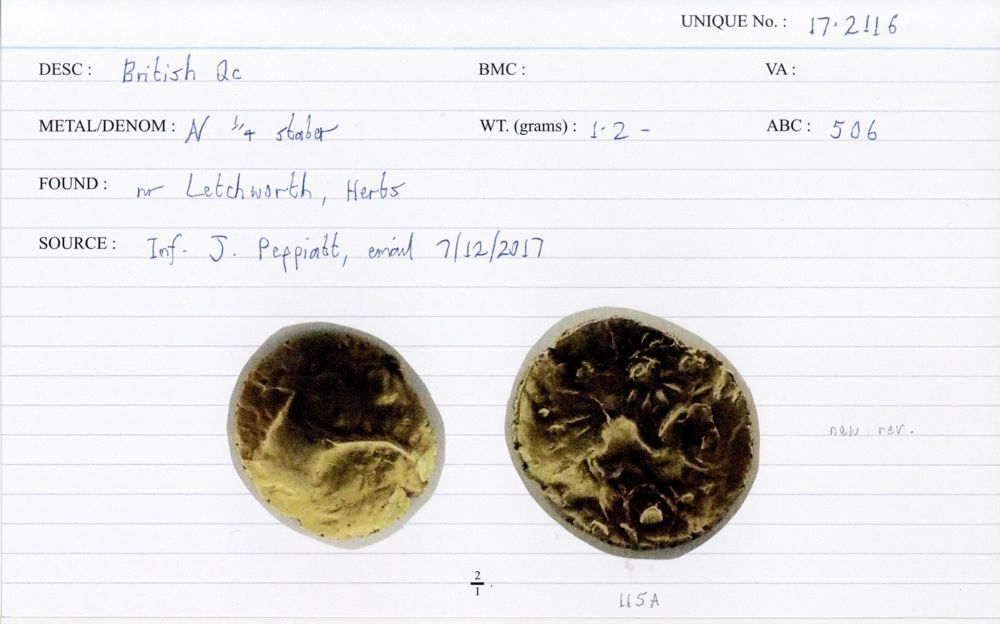 UNIQUE No. : 17·2116
DESC : British Qc BMC : VA :
METAL/DENOM : N 1/4 stater WT. (grams) : 1·2 - ABC : 506
FOUND : nr Letchworth, Herts
SOURCE : Inf. J. Peppiatt, email 7/12/2017
new rev.
2/1 .
115A